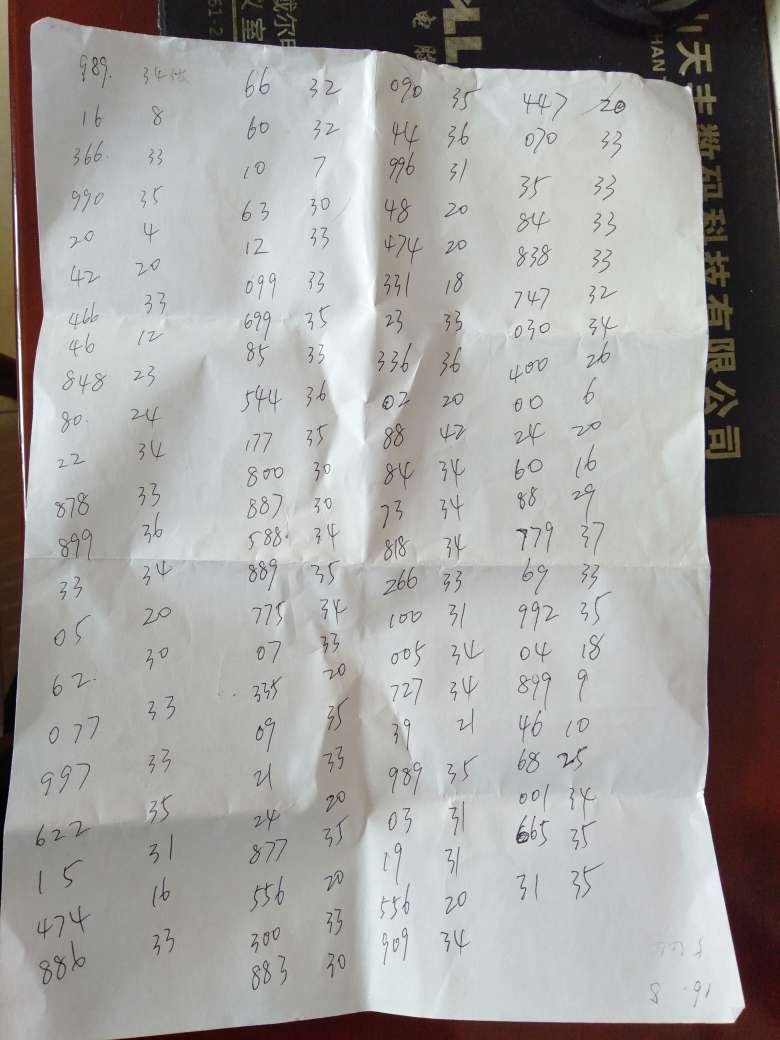 989. 34 66 32 090 35 447 20
16 8 60 32 44 36 070 33
366. 33 10 7 996 31 35 33
990 35 63 30 48 20 84 33
20 4 12 33 474 20 838 33
42 20 099 33 331 18 747 32
466 33 699 35 23 33 030 34
46 12 85 33 336 36 400 26
848 23 544 36 02 20 00 6
80. 24 177 35 88 42 24 20
22 34 800 30 84 34 60 16
878 33 887 30 73 34 88 29
899 36 588 34 818 34 779 37
33 34 889 35 266 33 69 33
05 20 775 34 100 31 992 35
62. 30 07 33 005 34 04 18
077 33 335 20 727 34 899 9
997 33 09 35 39 21 46 10
622 35 21 33 989 35 68 25
15 31 24 20 03 31 001 34
474 16 877 35 19 31 665 35
886 33 556 20 556 20 31 35
300 33 909 34
883 30
天丰数码科技有限公司